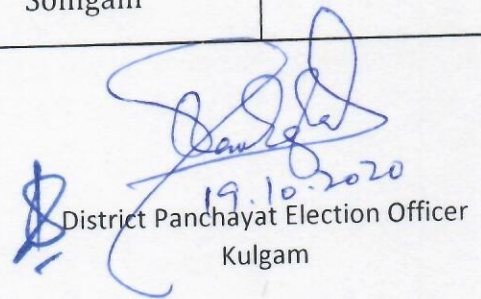 Sonigam
19.10.2020
District Panchayat Election Officer
Kulgam